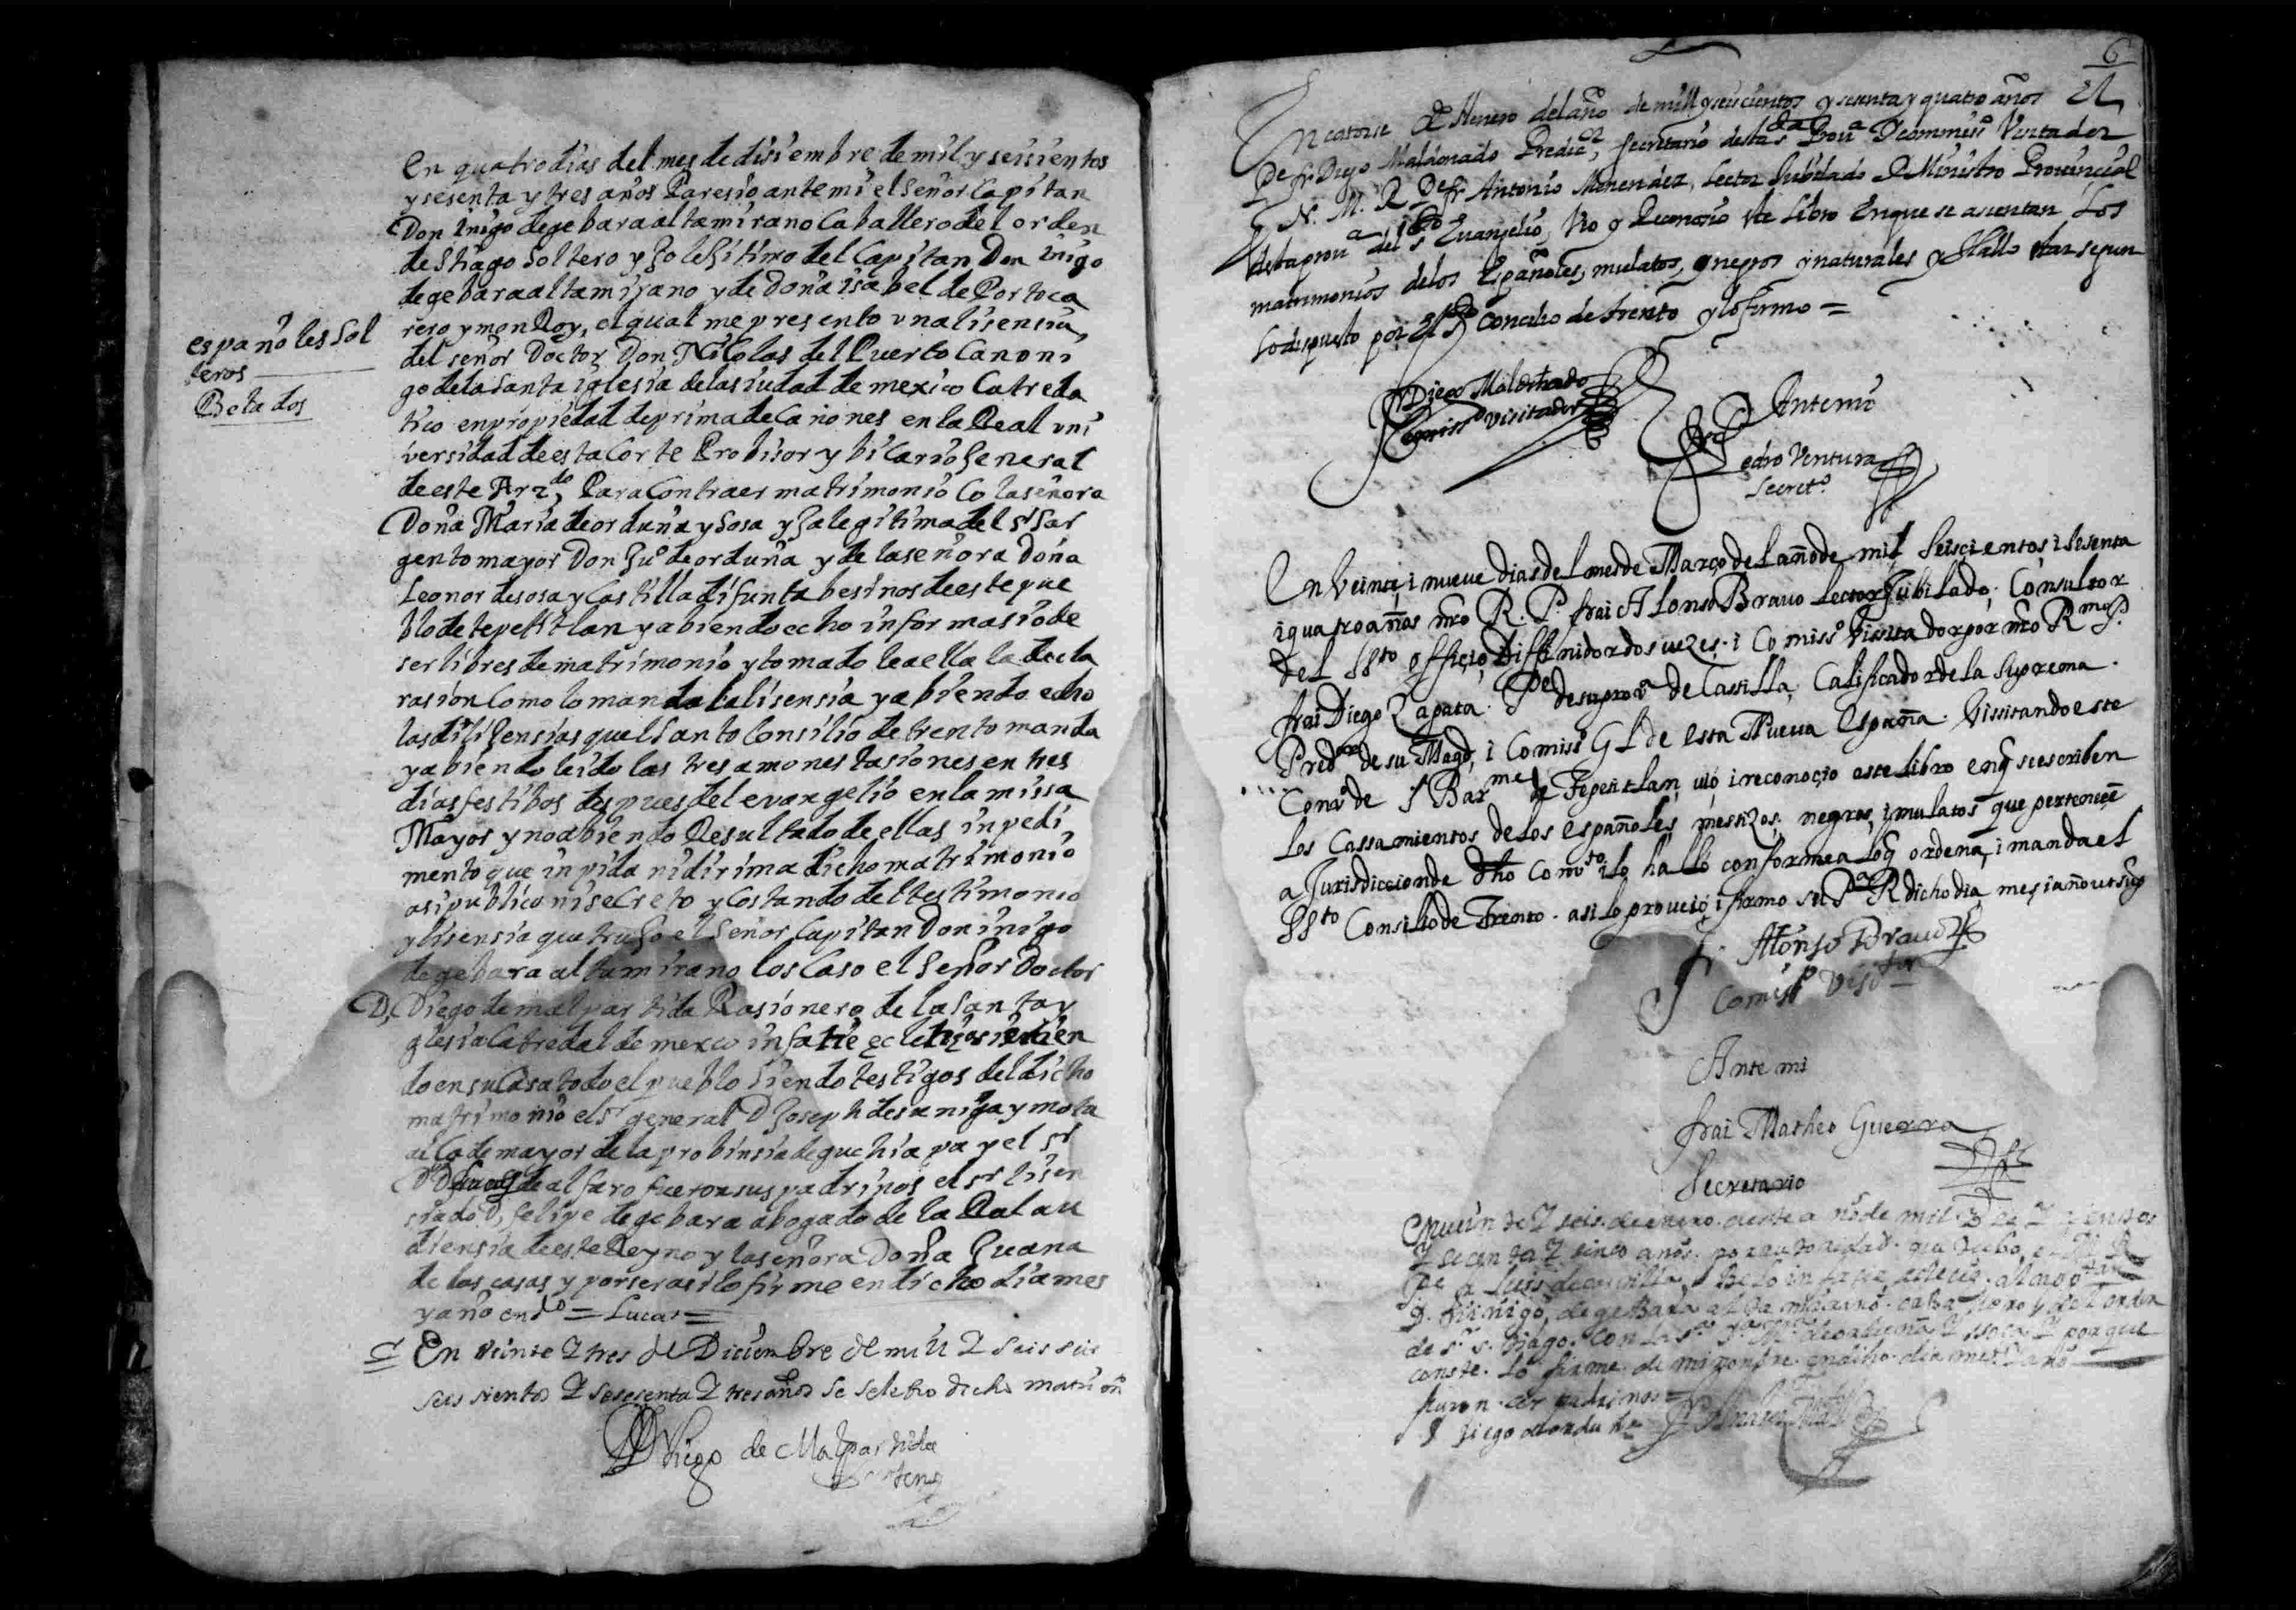 españoles sol
teros
Belados
en quatro dias del mes de disiembre de mil y seisientos
y sesenta y tres años Paresio ante mi el señor Capitan
Don inigo de gebara altamirano Caballero del orden
de Stiago soltero y Jo lejitimo del Capitan Don inigo
de gebara altamirano y de Doña isabel de Portoca
rero y monRoy, el qual me presento una lisensia
del señor Doctor Don Nicolas del Puerto Canoni
go de la santa iglesia de la siudad de mexico Catreda
tico en propiedad de prima de Canones en la Real uni
versidad de esta Corte Probisor y bicario Jeneral
de este Arzdo, Para Contraer matrimonio Co la señora
Doña Maria de orduña y Sosa yJa legitima del Sr Sar
gento mayor Don Juo de orduña y de la señora Doña
Leonor de sosa y Castilla difunta besinos de este pue
blo de tepetitlan y abiendo echo informasio de
ser libres de matrimonio y tomado le a ella la decla
rasion Como lo manda la lisensia y abiendo echo
las dilijensias quel Santo Consilio de trento manda
y abiendo leido las tres amonestasiones en tres
dias festibos despues del evangelio en la missa
Mayor y no abiendo Resultado de ellas inpedi
mento que inpida ni dirima dicho matrimonio
asi publico ni seCreto y Costando del testimonio
y lisensia que trujo el Señor Capitan Don inigo
de gebara altamirano los Caso el señor Doctor
D, Diego de malpartida Rasionero de la santa y
glesia Catredal de mexco in fatie
do en su Casa todo el pueblo siendo testigos del dicho
matrimonio el sr general D Joseph de y mota
alCade mayor de la probinsia de guchiapa y el sr
de alfaro fueron sus padrinos el sr lisen
siado D, felipe de gebara abogado de la Real au
diensia de este Reyno y la señora Doña Juana
de las casas y por ser asi lo firme en dicho dia mes
y año = Lucas =
En veinte Y tres de Diciembre de mill Y seis sie
seis sientos Y sesesenta Y tres años se selebro dicho
D Diego de Malpartida
Zenteno
6
En catorse de Henero del año de mill y seiscientos y sesenta y quatro años El
Pe fr Diego Maldonado Predicor, secretario desta sta Proua Y commisso Visitador
N. M. R. Pe fr Antonio Menendez, Lector Jubilado Y Ministro Prouincial
desta prou a del sto Euangelio, Vio y Reconosio este Libro En que se asientan Los
matrimonios de los Españoles, mulatos, y negros y naturales y Hallo estar segun
Lo dispuesto por El Sto Concilio de trento y lo firmo =
fr Diego Maldonado
Comisso visitador
Antemi
fr Pedro Ventura
Secreto
En Veinte i nueve dias del mes de Março del año de mil Seiscientos i sesenta
i quatro años nro R. P. frai Alonso Brauo Lector Jubilado, Consultor
del SSto officio, Diffinidor dos uezes, i Comisso Vissitador por nro Rmo P.
frai Diego Zapata. Pe de su proua de Castilla, Calificador de la Suprema.
Predor de su Magd, i Comisso GL de esta Nueua España. Vissitando este
Conuo de S Barme de Tepetitlan, uio i reconoçio aste Libro en q se escriben
Los Cassamientos de los españoles, mestizos, negros, i mulatos que perteneçe
a Jurisdiccion de dho Conuto i lo hallo conforme a lo q ordena, i manda el
SSto Consilio de Trento. asi lo proueió, i firmo su P. R dicho dia, mes i año ut sup
fr Alonso Brauo
Comisso Visdor
Ante mi
frai Matheo Guerra
Secretario
Y seis de enero de este año de mil
Y sesenta Y sinco años. por autoridad que tubo
Pe fr Luis in facie al capitan
D. inigo de gebara altamirano caballero del orden
de sr s. tiago. Con la sra Da Ma de orduña Y por que
conste. lo firme de mi nonbre en dicho dia mes Y año
fueron sus padrinos
D Diego de orduña